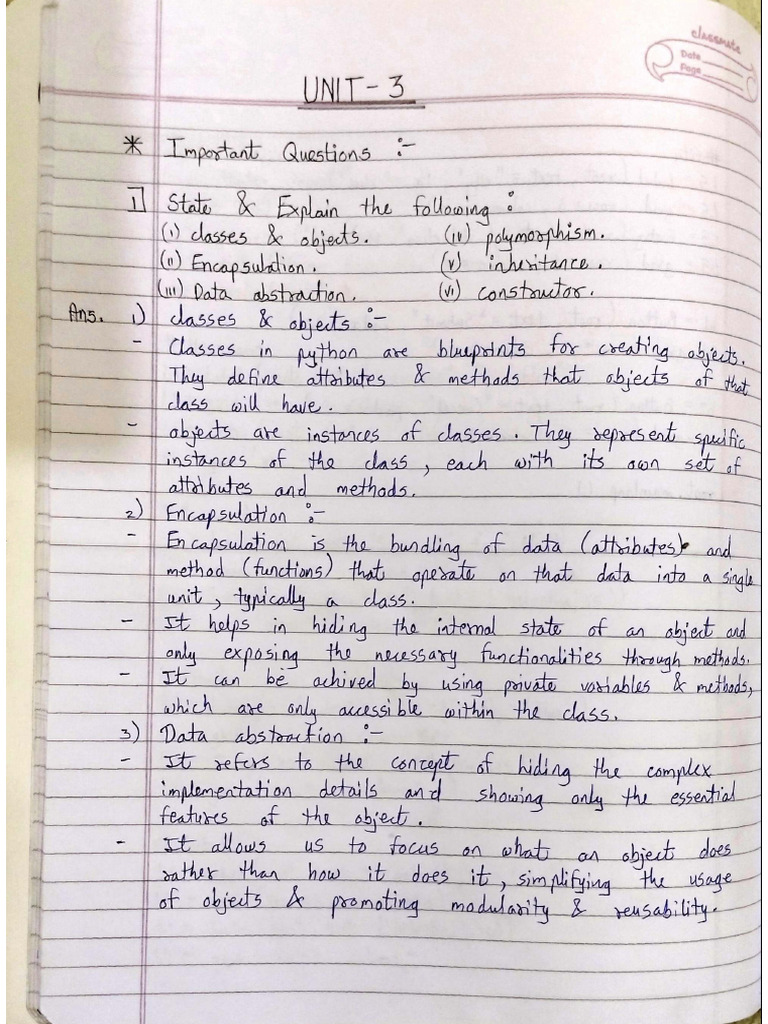 classmate
Date
Page
UNIT - 3
* Important Questions :-
1] State & Explain the following :
(i) classes & objects. (iv) polymorphism.
(ii) Encapsulation. (v) inheritance.
(iii) Data abstraction. (vi) constructor.
Ans. 1) classes & objects :-
- Classes in python are blueprints for creating objects.
They define attributes & methods that objects of that
class will have.
- objects are instances of classes. They represent specific
instances of the class, each with its own set of
attributes and methods.
2) Encapsulation :-
- Encapsulation is the bundling of data (attributes) and
method (functions) that operate on that data into a single
unit, typically a class.
- It helps in hiding the internal state of an object and
only exposing the necessary functionalities through methods.
- It can be achived by using private variables & methods,
which are only accessible within the class.
3) Data abstraction :-
- It refers to the concept of hiding the complex
implementation details and showing only the essential
features of the object.
- It allows us to focus on what an object does
rather than how it does it, simplifying the usage
of objects & promoting modularity & reusability.